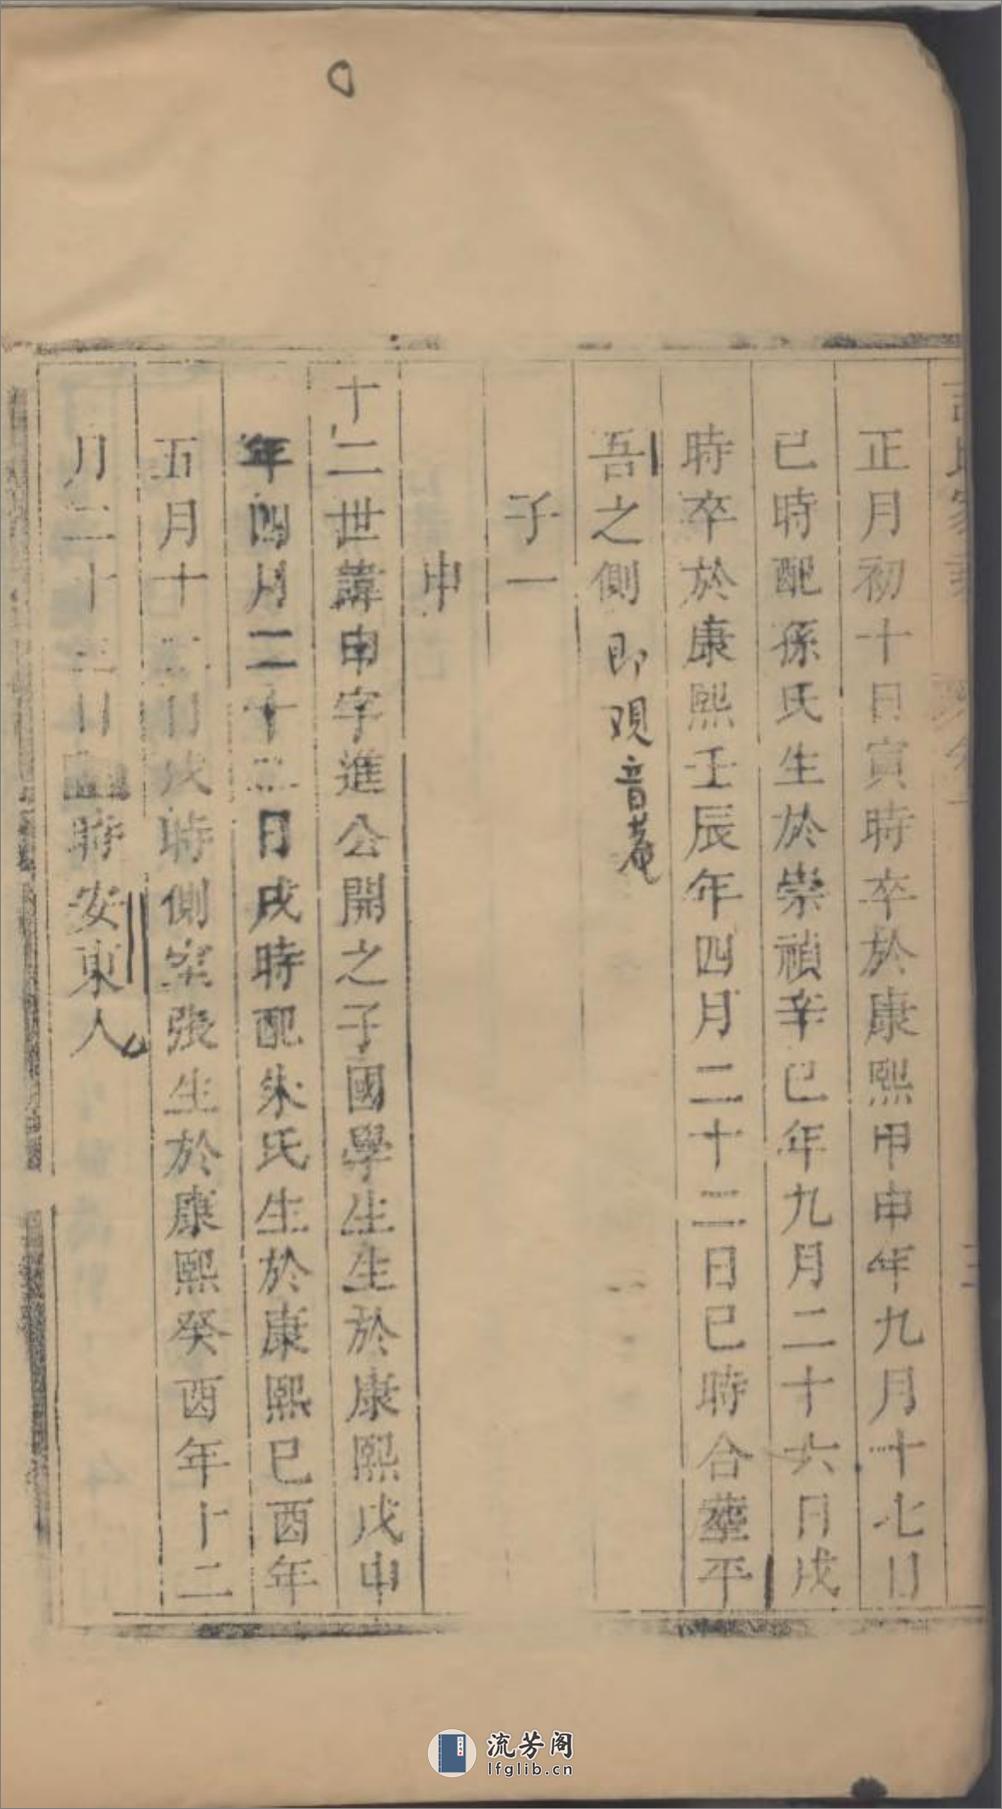 正月初十日寅時卒於康熙甲申年九月十七日
巳時配孫氏生於崇禎辛巳年九月二十六日戌
時卒於康熙壬辰年四月二十二日巳時合葬平
吾之側即观音菴
子一
申
十二世諱申字進公開之子國學生生於康熙戊申
年四月二十二日戌時配朱氏生於康熙己酉年
五月十二日戌時側室張生於康熙癸酉年十二
月二十三日時安東人
流芳阁
lfglib.cn